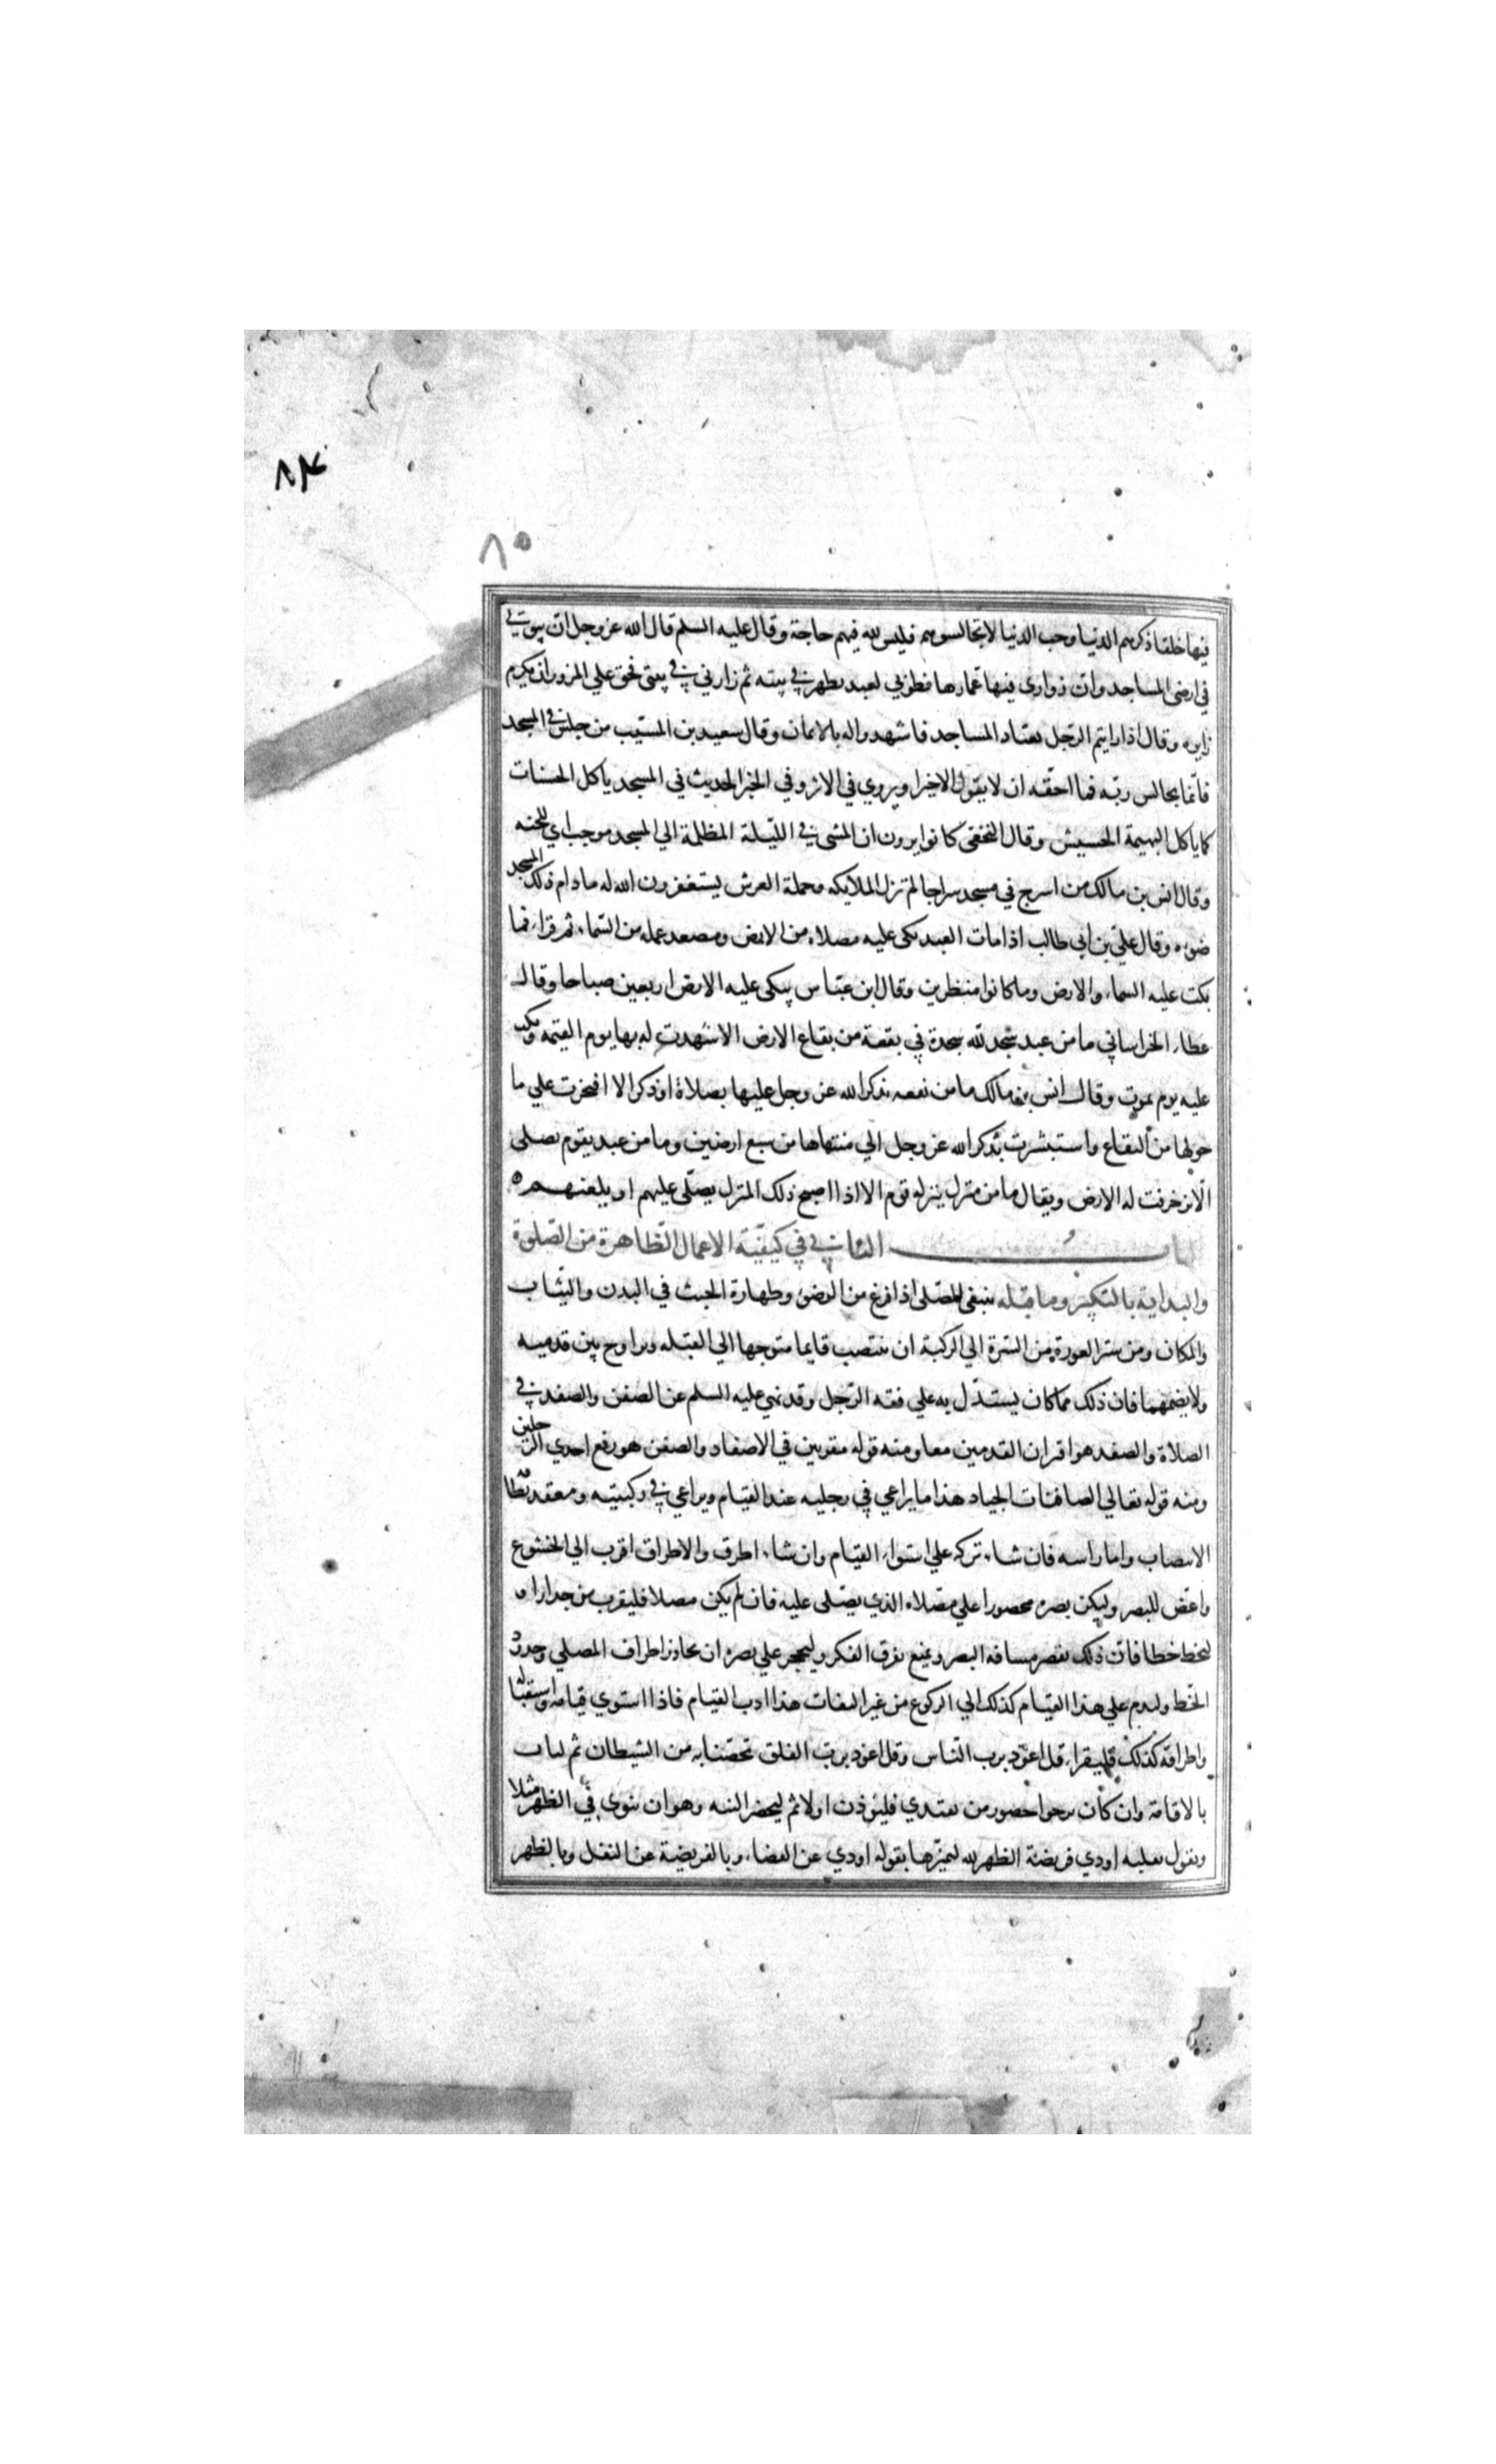 ٨٤
٨٥
فيها خلقا ذكرهم الدنيا وحب الدنيا لا تجالسوهم فليس لله فيهم حاجة وقال عليه السلم قال الله عز وجل ان بيوتي
في ارضي المساجد وان زواري فيها عمارها فطوبي لعبد تطهر في بيته ثم زارني في بيتي فحق علي المزور ان يكرم
زايره وقال اذا رايتم الرجل يعتاد المساجد فاشهدوا له بالايمان وقال سعيد بن المسيب من جلس في المسجد
فانما يجالس ربه فما احقه ان لا يقول الا خيرا ويروي في الاثر وفي الخبر الحديث في المسجد ياكل الحسنات
كما ياكل البهيمة الحسيش وقال النخعي كانوا يرون ان المشي في الليلة المظلمة الي المسجد موجب اي للجنه
وقال انس بن مالك من اسرج في مسجد سراجا لم تزل الملايكه وحملة العرش يستغفرون الله له ما دام في ذلك المسجد
ضوءه وقال علي بن ابي طالب اذا مات العبد بكي عليه مصلاه من الارض ومصعد عمله من السماء ثم قراء فما
بكت عليه السماء والارض وما كانوا منظرين وقال ابن عباس يبكي عليه الارض اربعين صباحا وقال
عطاء الخراساني ما من عبد سجد لله سجدة في بقعة من بقاع الارض الا شهدت له بها يوم القيمه وبكت
عليه يوم يموت وقال انس بن مالك ما من بقعه يذكر الله عز وجل عليها بصلاة او ذكر الا افتخرت علي ما
حولها من البقاع واستبشرت بذكر الله عز وجل الي منتهاها من سبع ارضين وما من عبد يقوم يصلي
الا تزخرفت له الارض ويقال ما من منزل ينزله قوم الا اذا اصبح ذلك المنزل يصلي عليهم او يلعنهم ه
الباب الثاني في كيفية الاعمال الظاهرة من الصلوة
والبداية بالتكبير وما قبله ينبغي للمصلي اذا فرغ من الوضوء وطهارة الخبث في البدن والثياب
والمكان ومن ستر العورة من السرة الي الركبة ان ينتصب قايما متوجها الي القبله ويراوح بين قدميه
ولا يضمهما فان ذلك مما كان يستدل به علي فقه الرجل وقد نهي عليه السلم عن الصفن والصفد في
الصلاة والصفد هو اقران القدمين معا ومنه قوله مقرنين في الاصفاد والصفن هو رفع احدي الرجلين
ومنه قوله تعالي الصافنات الجياد هذا ما يراعي في رجليه عند القيام ويراعي في ركبتيه ومعقد نطاقه
الانتصاب واما راسه فان شاء تركه علي استواء القيام وان شاء اطرق والاطراق اقرب الي الخشوع
واغض للبصر وليكن بصره محصورا علي مصلاه الذي يصلي عليه فان لم يكن مصلا فليقرب من جدار او
ليخط خطا فان ذلك يقصر مسافه البصر ويمنع تفرق الفكر وليحجر علي بصره ان يجاوز اطراف المصلي وحدود
الخط وليدم علي هذا القيام كذلك الي الركوع من غير التفات هذا ادب القيام فاذا استوي قيامه واستقباله
واطراقه كذلك فليقراء قل اعوذ برب الناس وقل اعوذ برب الفلق تحصنا به من الشيطان ثم ليات
بالاقامة وان كان يرجوا حضور من يقتدي فليؤذن اولا ثم ليحضر النيه وهو ان ينوي في الظهر مثلا
ويقول بقلبه اودي فريضة الظهر لله ليميزها بقوله اودي عن القضاء وبالفريضة عن النفل وبالظهر